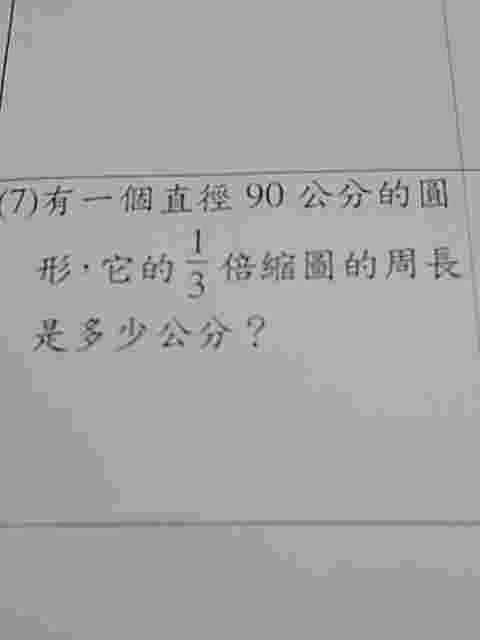 (7)有一個直徑 90 公分的圓
形，它的 1/3 倍縮圖的周長
是多少公分？